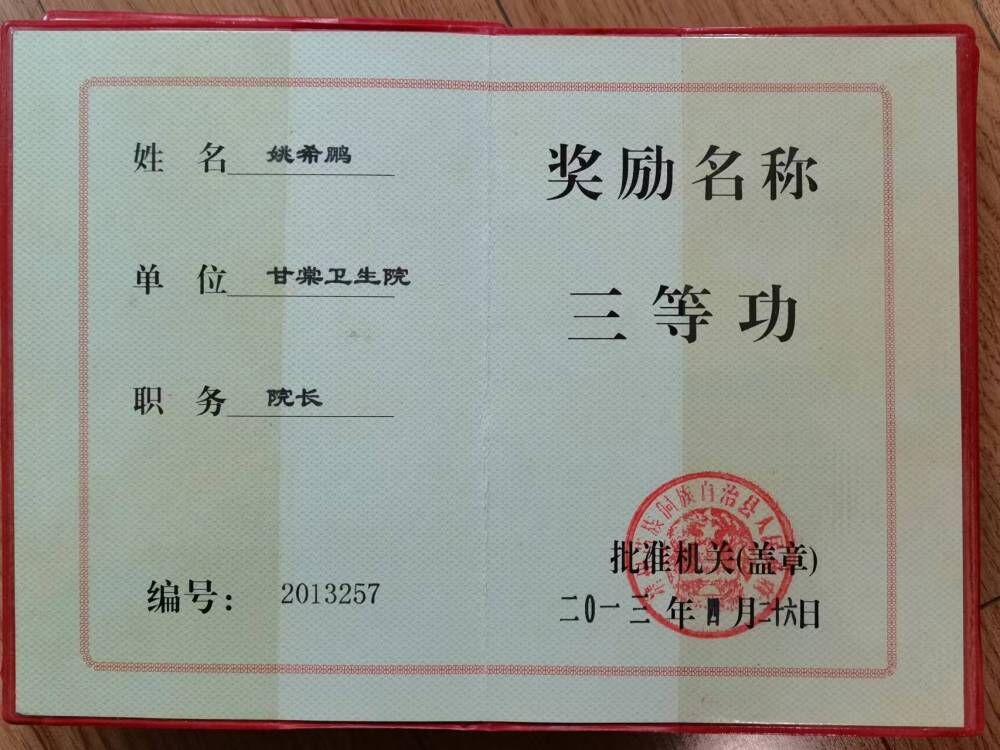 姓名 姚希鹏
单位 甘棠卫生院
职务 院长
编号: 2013257
奖励名称
三等功
族自治县人民
批准机关(盖章)
二0一三年四月二十六日